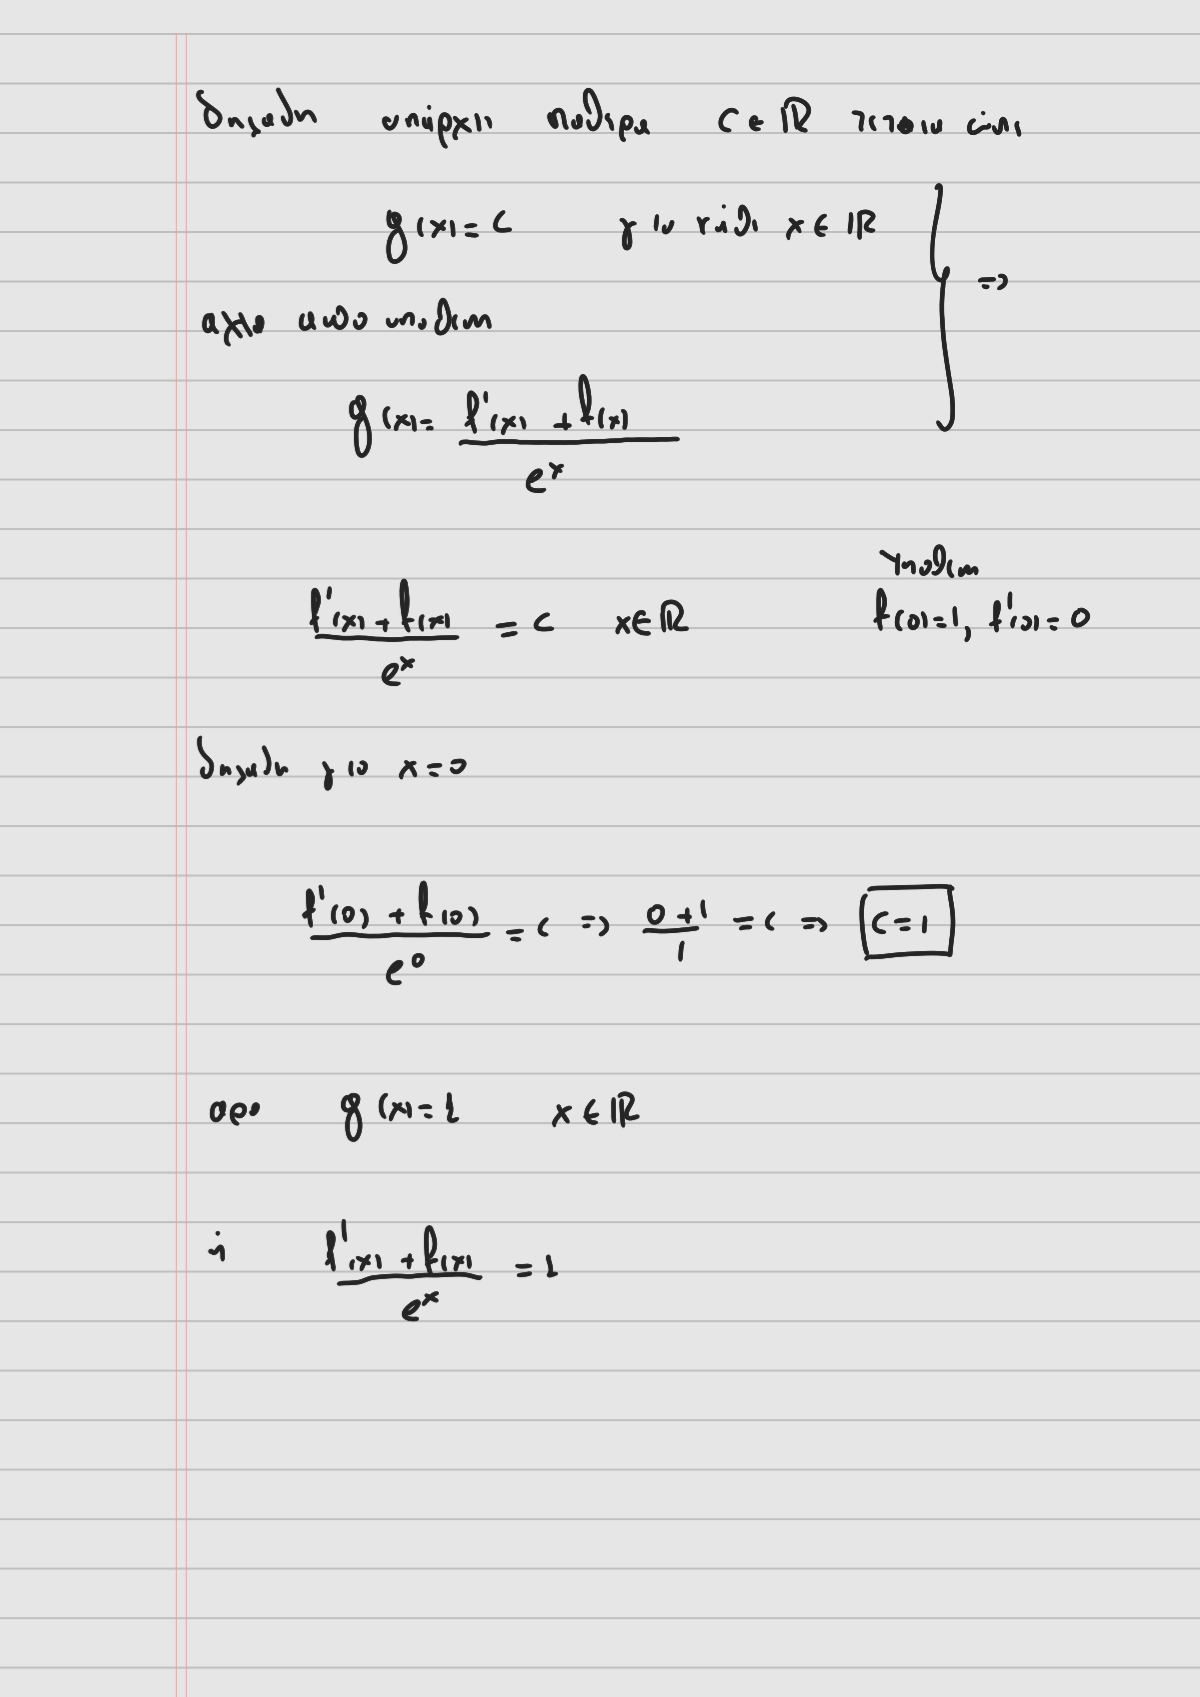 δηλαδη υπάρχει σταθερα c ∈ ℝ τετοιο ώστε
g(x) = c για κάθε x ∈ ℝ
⇒
αλλα απο υποθεση
g(x) = \frac{f'(x) + f(x)}{e^x}
Υποθεση
\frac{f'(x) + f(x)}{e^x} = c x ∈ ℝ f(0) = 1, f'(0) = 0
δηλαδη για x = 0
\frac{f'(0) + f(0)}{e^0} = c ⇒ \frac{0 + 1}{1} = c ⇒ c = 1
αρα g(x) = 1 x ∈ ℝ
ή \frac{f'(x) + f(x)}{e^x} = 1